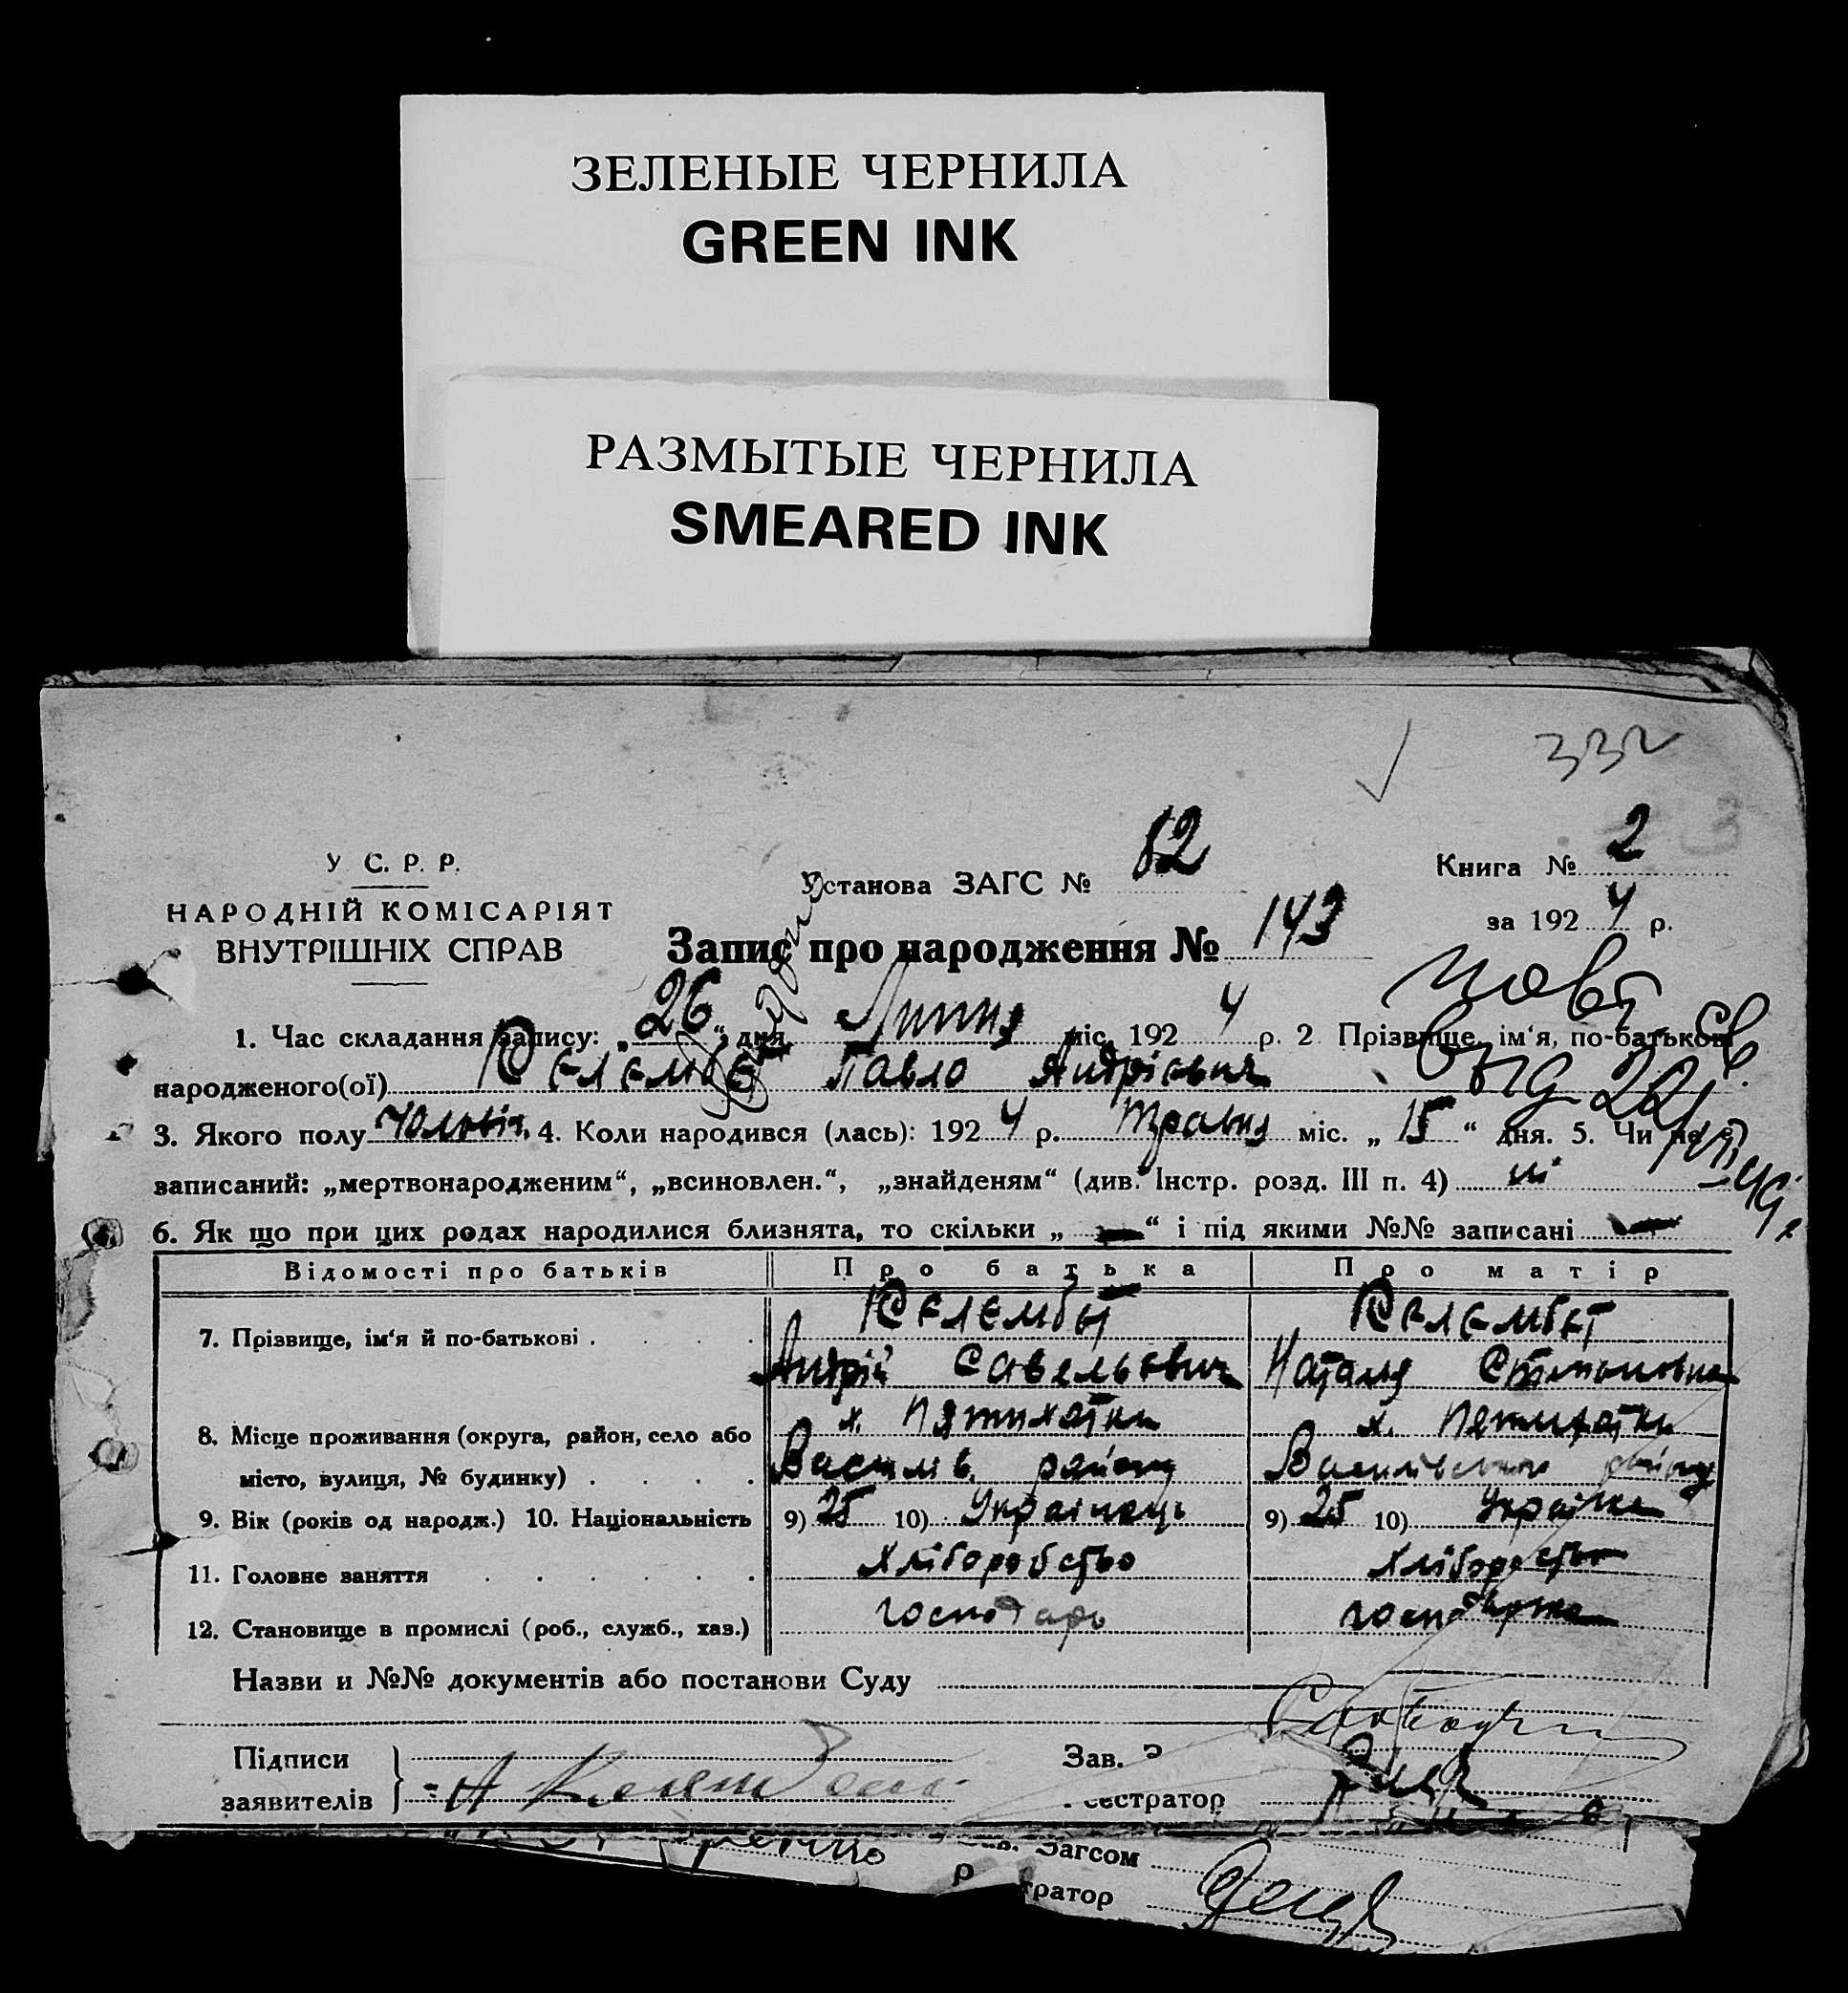 ЗЕЛЕНЫЕ ЧЕРНИЛА
GREEN INK
РАЗМЫТЫЕ ЧЕРНИЛА
SMEARED INK
332
У С. Р. Р.
НАРОДНІЙ КОМІСАРІЯТ
ВНУТРІШНІХ СПРАВ
Установа ЗАГС № 82
Книга № 2
за 1924 р.
Запис про народження № 143
1. Час складання запису: „26“ дня Липня міс. 1924 р. 2 Прізвище, ім‘я, по-батькові
народженого(ої) Келембет Павло Андрієвич
3. Якого полу чоловіч. 4. Коли народився (лась): 1924 р. Травня міс. „15“ дня. 5. Чи не є
записаний: „мертвонародженим“, „всиновлен.“, „знайденям“ (див. Інстр. розд. III п. 4) ні
6. Як що при цих родах народилися близнята, то скільки „ — “ і під якими №№ записані —
Відомості про батьків Про батька Про матір
7. Прізвище, ім‘я й по-батькові . . . . Келембет Келембет
Андрій Савельевич Наталя
8. Місце проживання (округа, район, село або х. Пятихатки х. Пятихатки
місто, вулиця, № будинку) . . . . Василів. району Василівського району
9. Вік (років од народж.) 10. Національність 9) 25 10) Українець 9) 25 10) Українка
11. Головне заняття . . . . . . хліборобство хліборобство
12. Становище в промислі (роб., служб., хаз.) господарь господарка
Назви и №№ документів або постанови Суду
Підписи
заявителів
Зав. З
естратор
Загсом
тратор